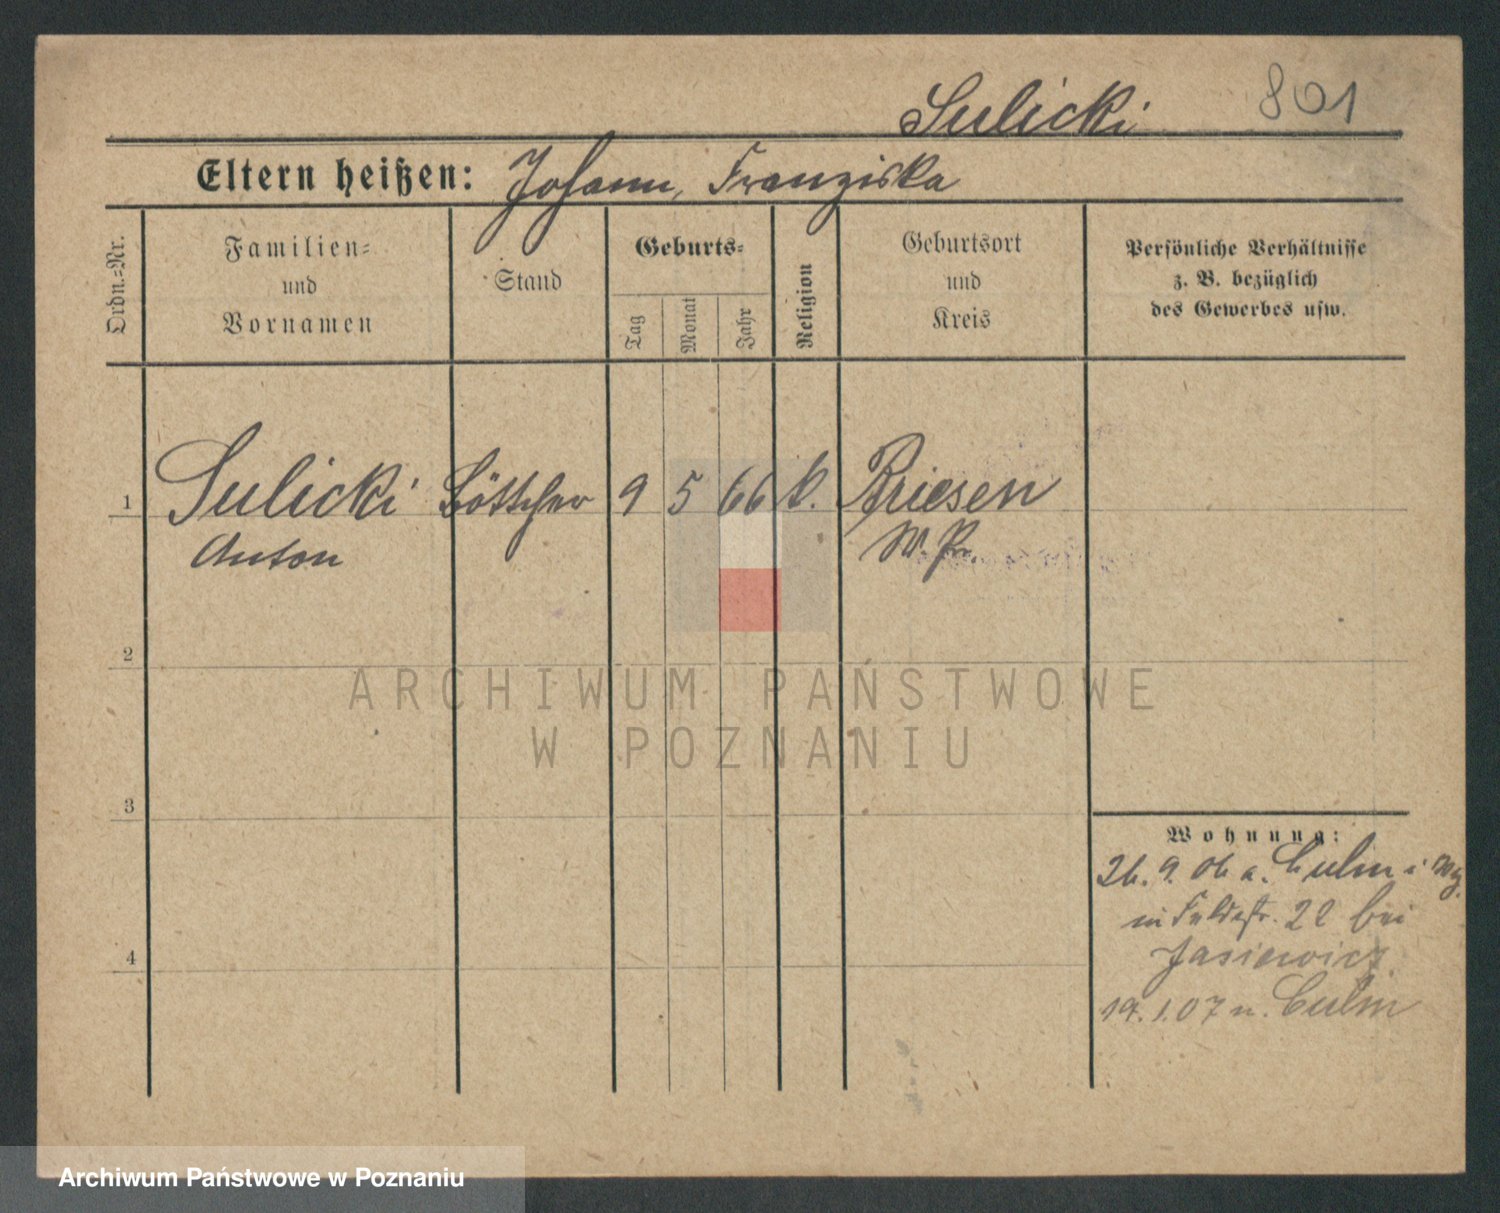 Sulicki 801
Eltern heißen: Johann, Franziska
Ordn.=Nr.
Familien=
und
Vornamen
Stand
Geburts=
Tag
Monat
Jahr
Religion
Geburtsort
und
Kreis
Persönliche Verhältnisse
z. B. bezüglich
des Gewerbes usw.
1 Sulicki Böttcher 9 5 66 k. Briesen
Anton W. Pr.
2
ARCHIWUM PAŃSTWOWE
W POZNANIU
3
Wohnung:
26. 9. 06 a. Culm i
in Feldstr. 22 bei
Jasiewicz
19. 1. 07 n. Culm
4
Archiwum Państwowe w Poznaniu